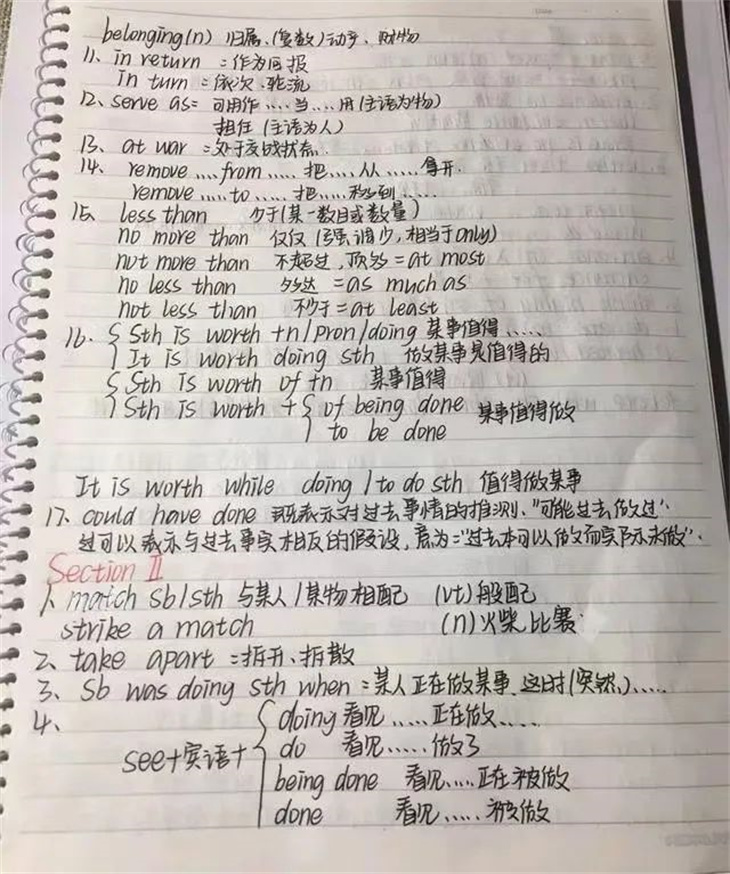 belonging(n) 归属、(复数)动产、财物
11、in return =作为回报
in turn =依次、轮流
12、serve as= 可用作....当....用(主语为物)
担任(主语为人)
13、at war =处于交战状态.
14、remove....from.....把....从.....拿开.
remove.....to.....把....移到.....
15、less than 少于(某一数目或数量)
no more than 仅仅(强调少,相当于only)
not more than 不超过,顶多=at most
no less than 多达 =as much as
not less than 不少于=at least
16、{ Sth is worth +n/pron/doing 某事值得.....
It is worth doing sth 做某事是值得的
{ Sth is worth of +n 某事值得
Sth is worth + { of being done 某事值得做
to be done
It is worth while doing / to do sth 值得做某事
17、could have done 既表示对过去事情的推测、"可能过去做过"、
过可以表示与过去事实相反的假设,意为="过去本可以做而实际未做"、
Section II
1、match sb/sth 与某人/某物相配 (vt)般配
strike a match (n)火柴 比赛
2、take apart =拆开、拆散
3、Sb was doing sth when =某人正在做某事、这时(突然、).....
4、
see+宾语+ { doing 看见.....正在做.....
do 看见.....做了
being done 看见....正在被做
done 看见.....被做